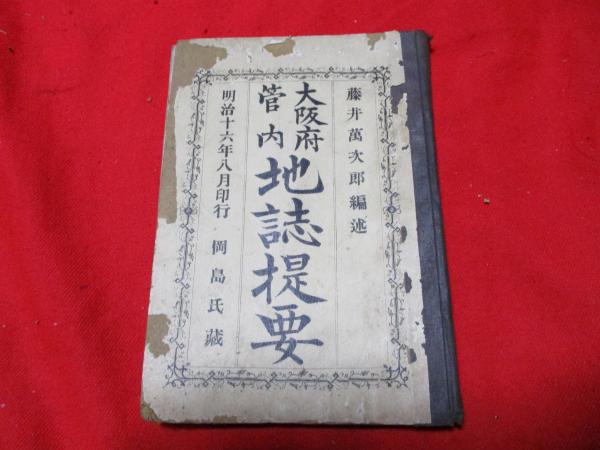 藤井萬次郎編述
大阪府
管内
地誌提要
明治十六年八月印行　岡島氏藏